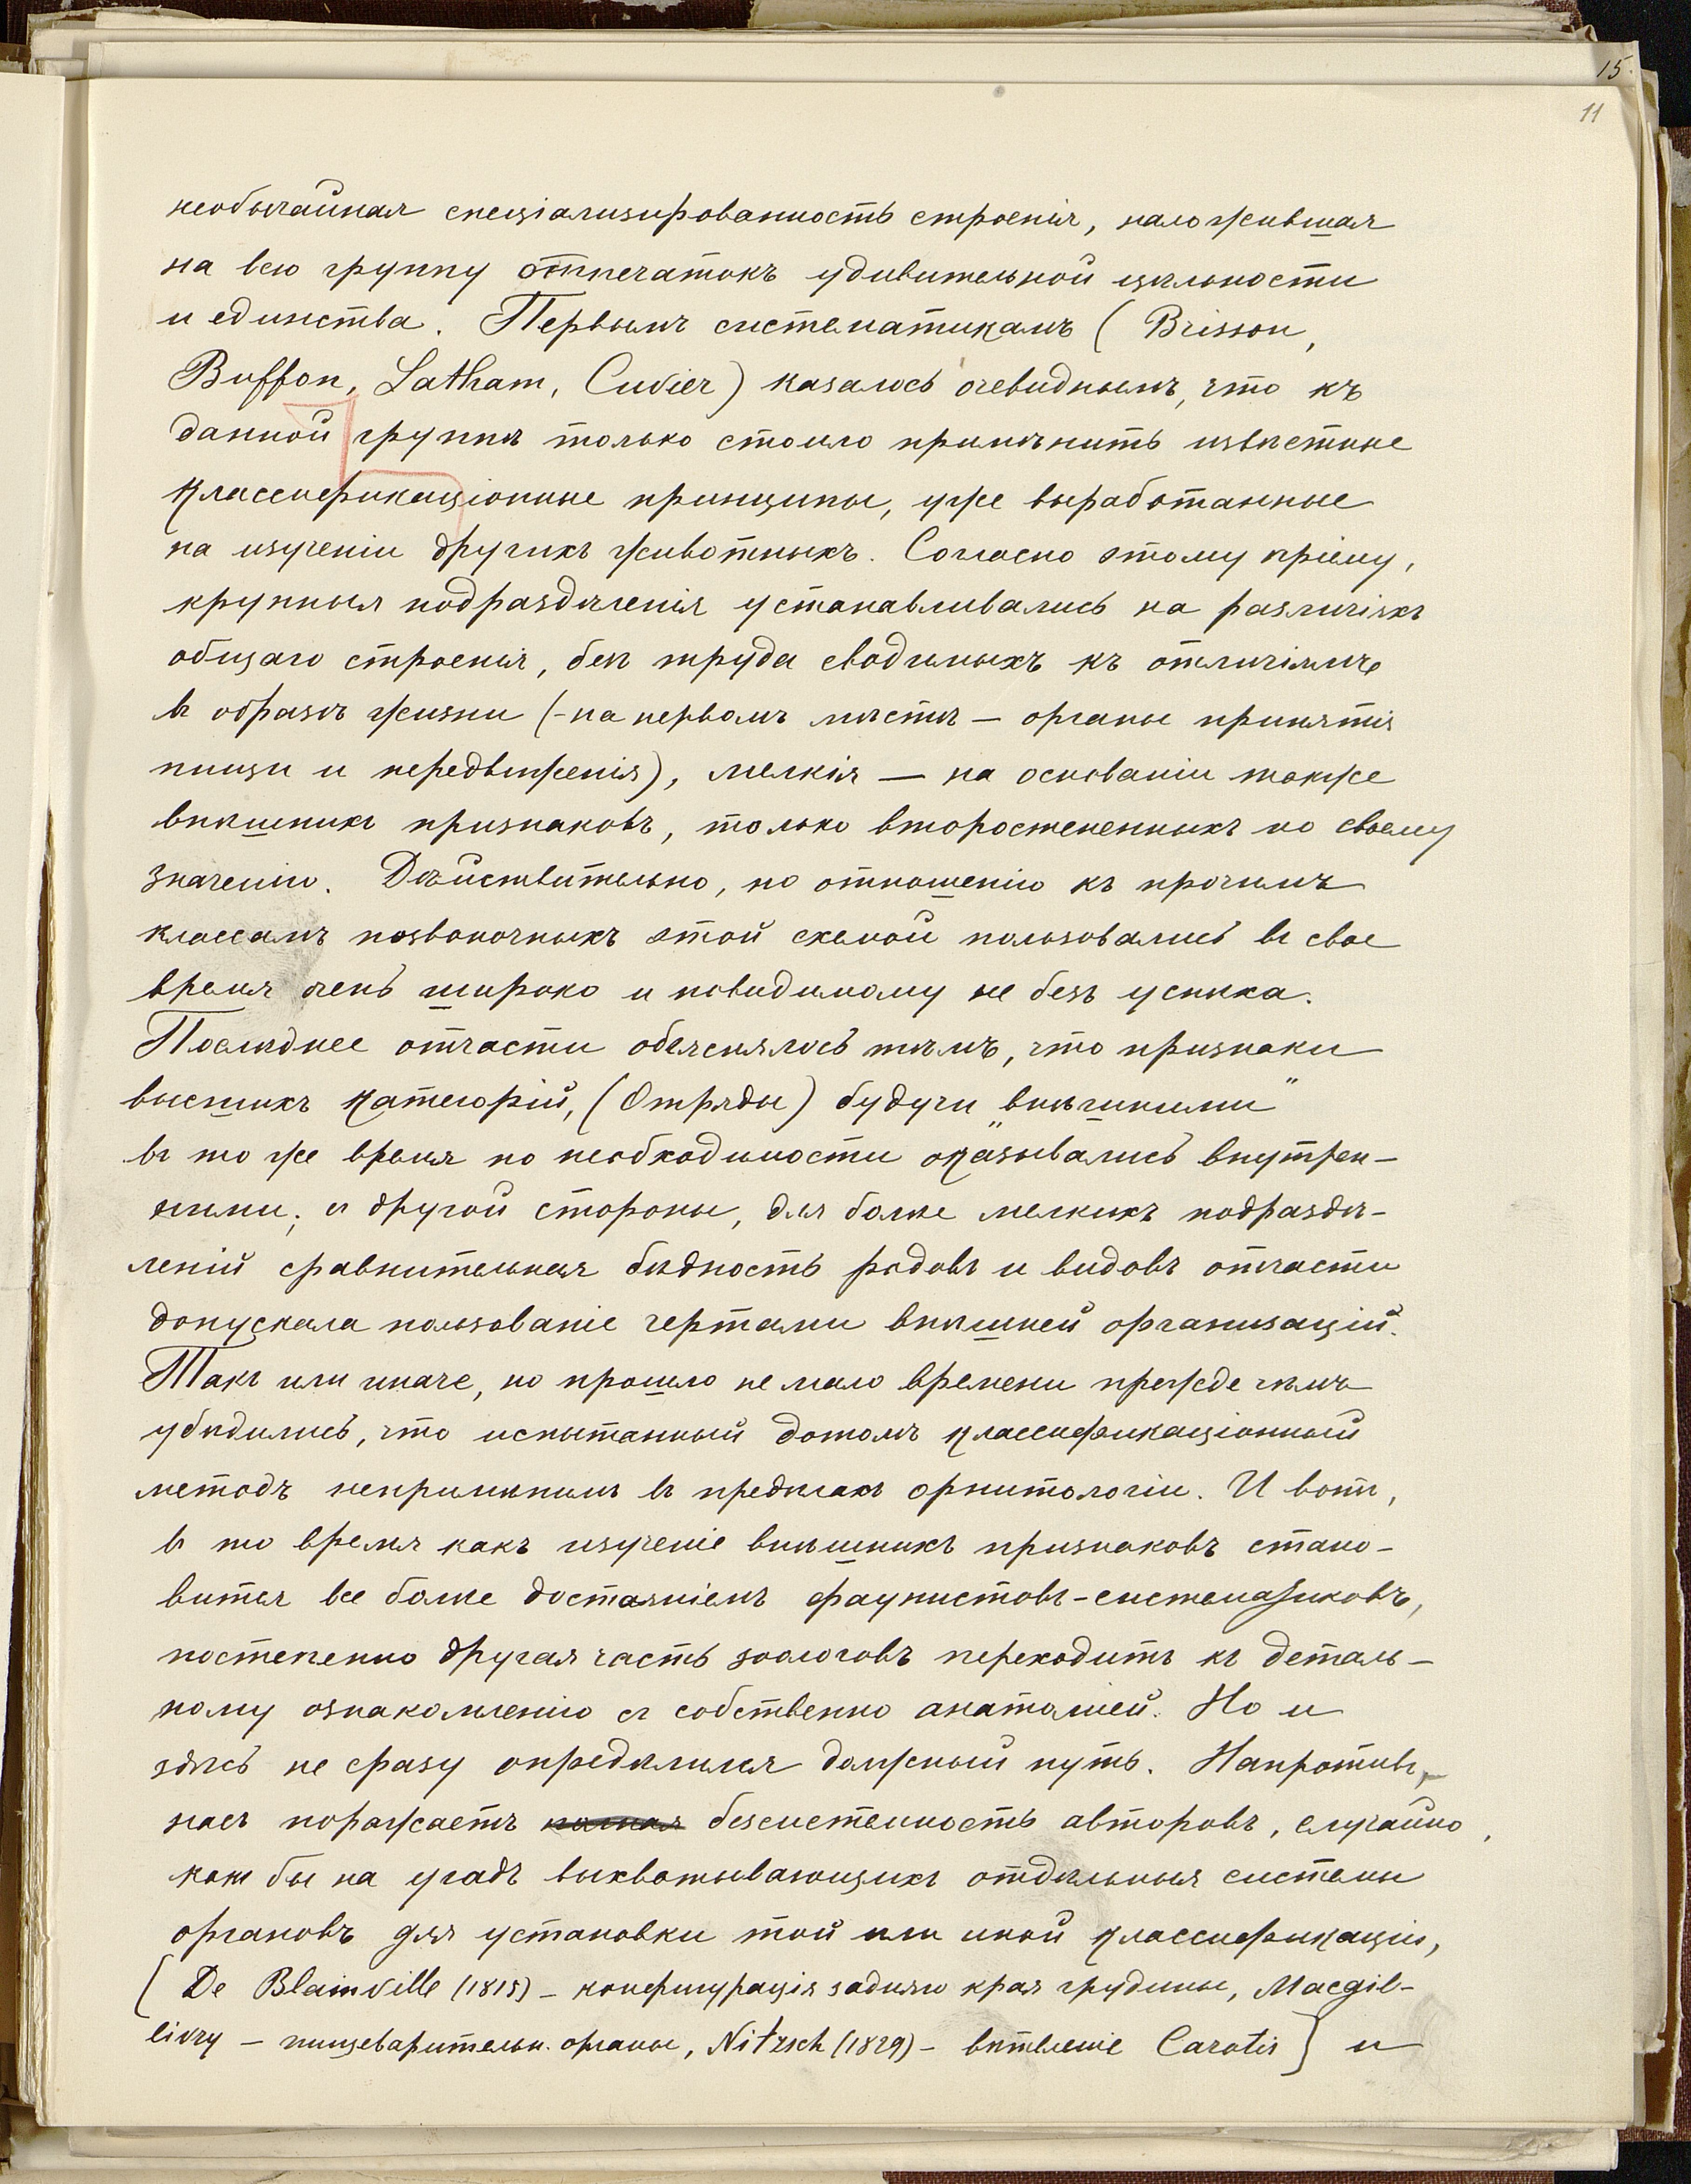 15.
11
необычайная спеціализированность строенія, наложившая
на всю группу отпечатокъ удивительной цѣльности
и единства. Первымъ систематикамъ (Brisson,
Buffon, Latham, Cuvier) казалось очевиднымъ, что къ
данной группѣ только стоило примѣнить извѣстные
классификаціонные принципы, уже выработанные
на изученіи другихъ животныхъ. Согласно этому пріему,
крупныя подраздѣленія устанавливались на различіяхъ
общаго строенія, безъ труда сводимыхъ къ отличіямъ
въ образѣ жизни (-на первомъ мѣстѣ – органы принятія
пищи и передвиженія), мелкія — на основаніи также
внѣшнихъ признаковъ, только второстепенныхъ по своему
значенію. Дѣйствительно, по отношенію къ прочимъ
классамъ позвоночныхъ этой схемой пользовались въ свое
время очень широко и повидимому не безъ успѣха.
Послѣднее отчасти объяснялось тѣмъ, что признаки
высшихъ категорій, (Отряды) будучи „внѣшними”
въ то же время по необходимости оказывались внутрен-
ними; съ другой стороны, для болѣе мелкихъ подраздѣ-
леній сравнительная бѣдность родовъ и видовъ отчасти
допускала пользованіе чертами внѣшней организацій.
Такъ или иначе, но прошло не мало времени прежде чѣмъ
убѣдились, что испытанный дотомъ классификаціонный
методъ непримѣнимъ въ предѣлахъ орнитологіи. И вотъ,
въ то время какъ изученіе внѣшнихъ признаковъ стано-
вится все болѣе достаяніемъ фаунистовъ-систематиковъ,
постепенно другая часть зоологовъ переходитъ къ деталь-
ному ознакомленію съ собственно анатоміей. Но и
здѣсь не сразу опредѣлился должный путь. Напротивъ,
насъ поражаетъ полная безсистемность авторовъ, случайно,
какъ бы на угадъ выхватывающихъ отдѣльныя системы
органовъ для установки той или иной классификаціи,
[De Blainville (1815) – конфигурація задняго края грудины, Macgil-
livry – пищеварительн. органы, Nitzsch (1829) – вѣтвленіе Carotis] и